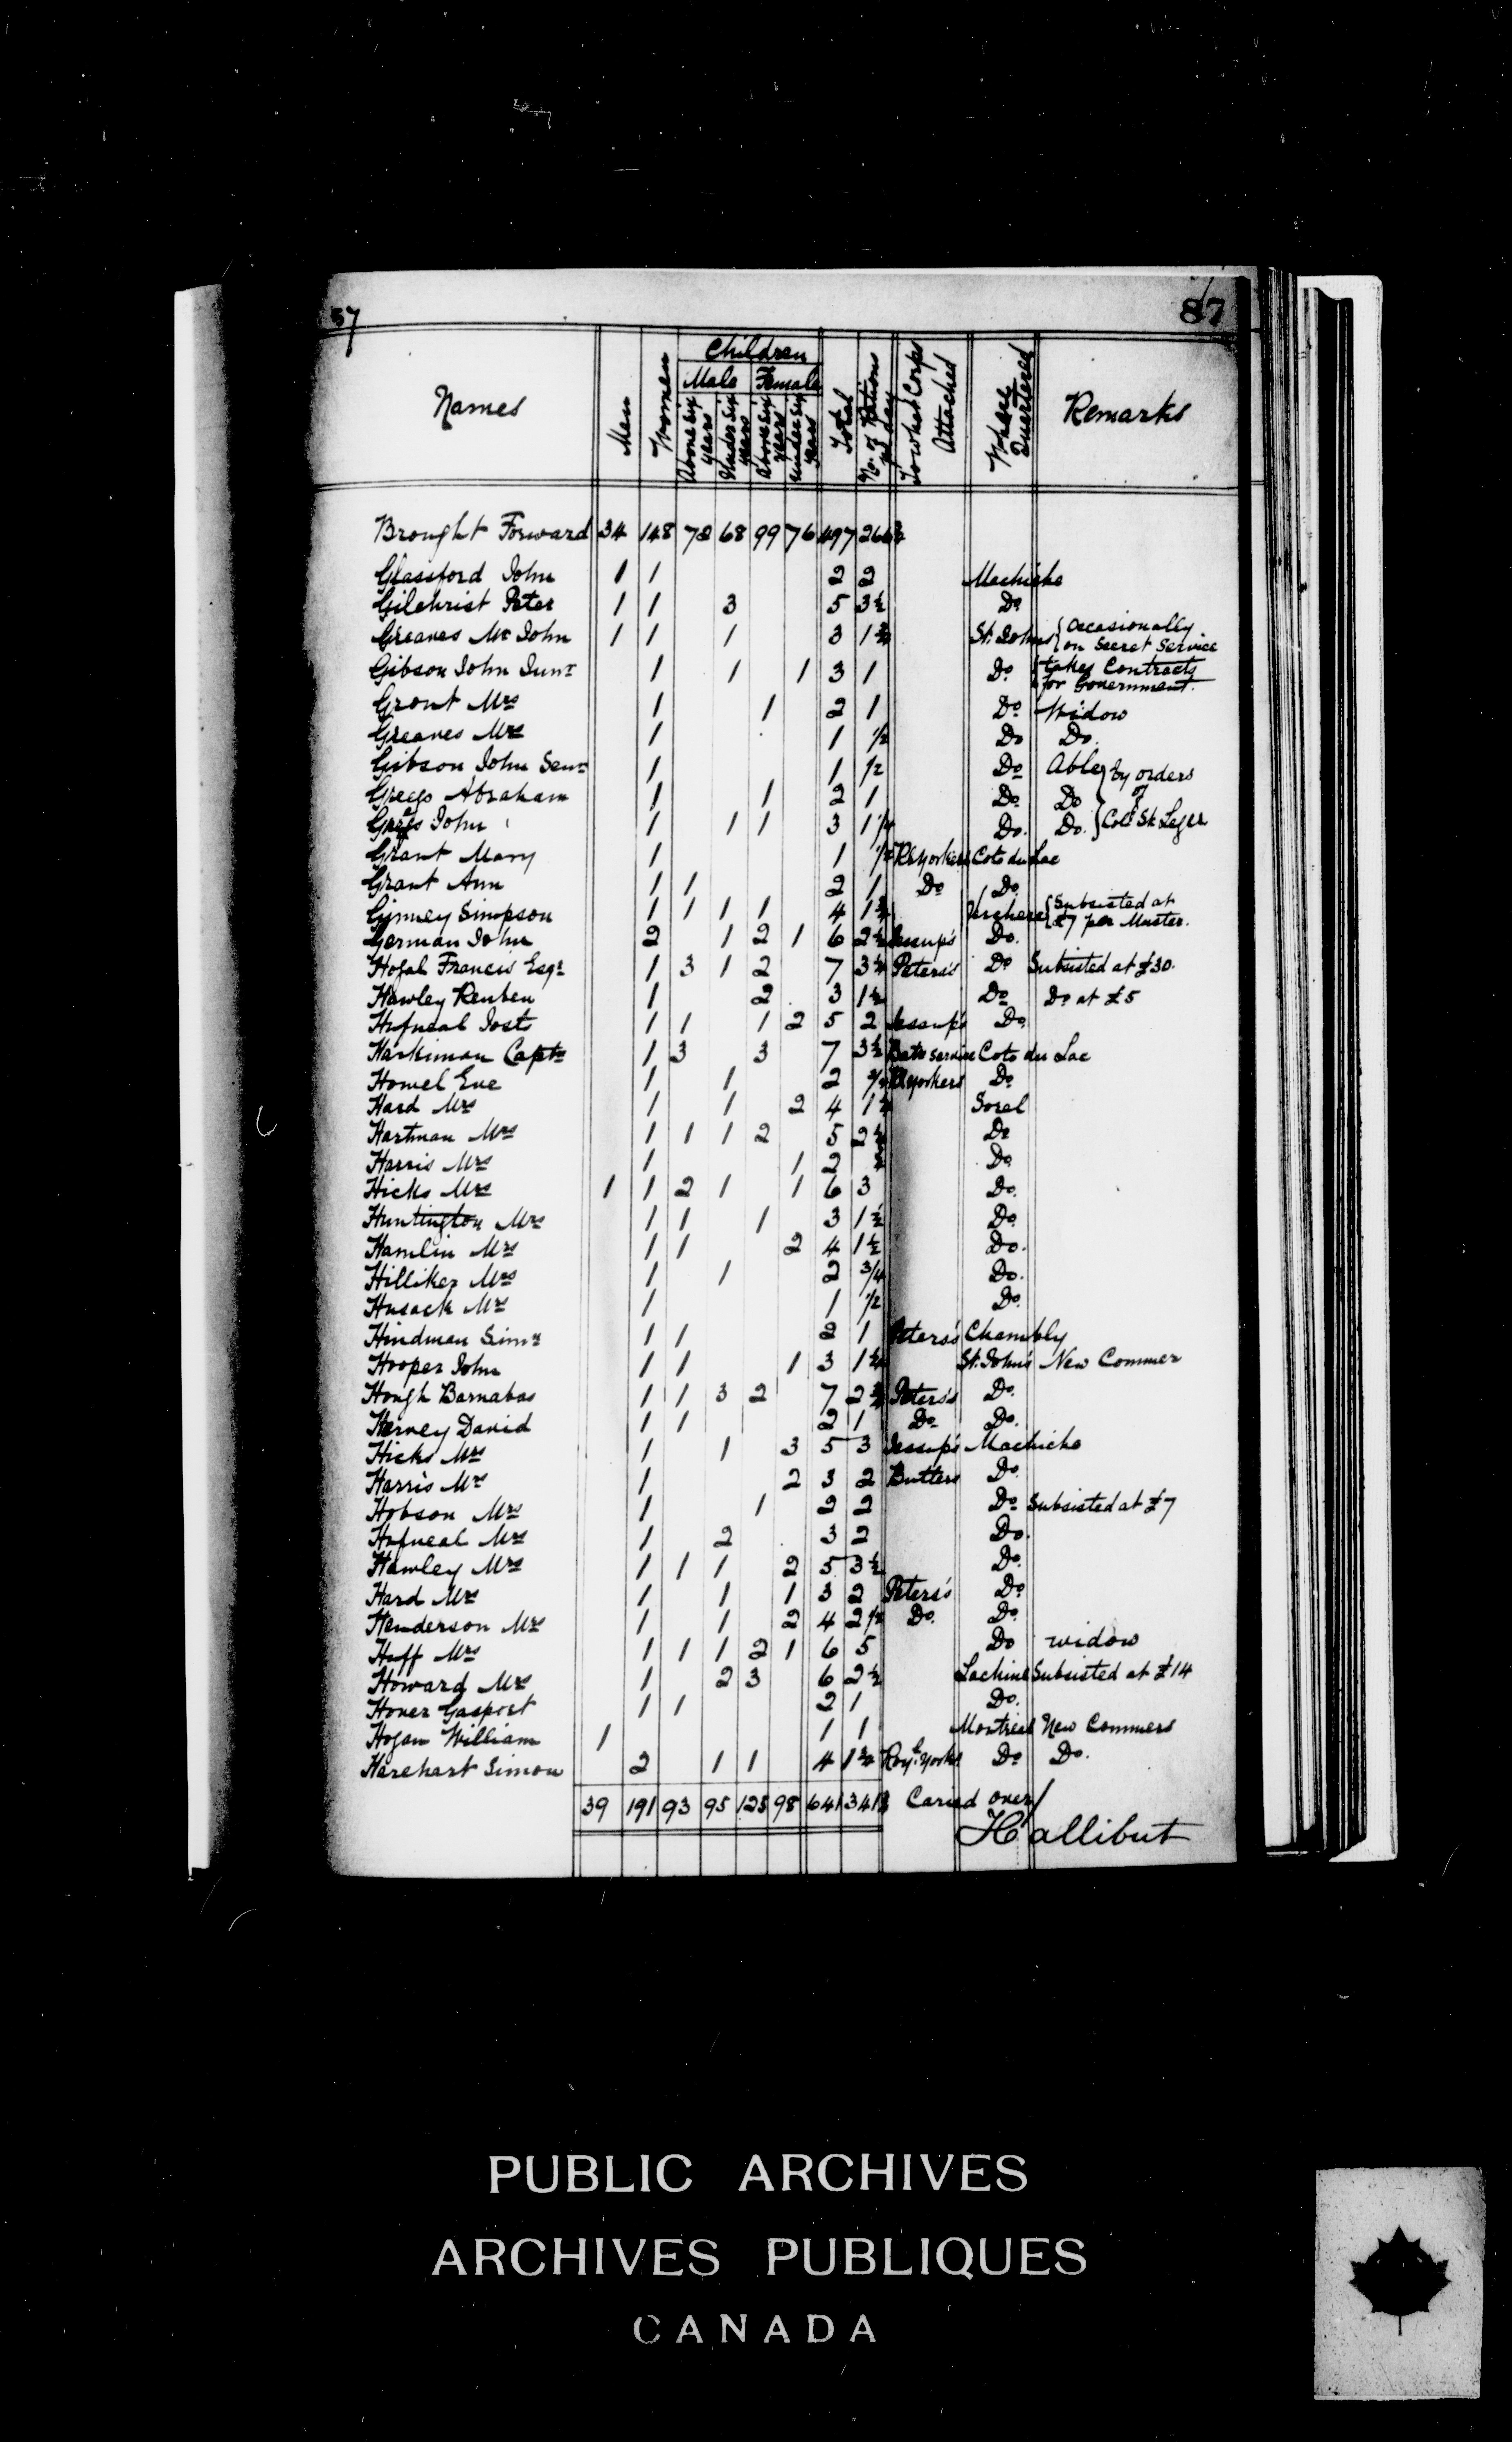 57 87
Names Men Women Children Male Female Above six years Under six years Above six years Under six years Total No. of Rations pr day To what Corps Attached Where Quartered Remarks
Brought Forward 34 148 72 68 99 76 497 266¾
Glassford John 1 1 2 2 Machiche
Gilchrist Peter 1 1 3 5 3½ Do
Greaves Mr John 1 1 1 3 1¾ St. Johns { Occasionally on Secret Service
Gibson John Junr 1 1 1 3 1 Do { takes Contracts for Government.
Grant Mrs 1 1 2 1 Do Widow
Greaves Mrs 1 1 ½ Do Do.
Gibson John Senr 1 1 ½ Do Able } by orders
Greggs Abraham 1 1 2 1 Do Do } of
Greggs John 1 1 1 3 1¼ Do. Do. } Coll St Leger
Grant Mary 1 1 ½ Rl Yorkers Coto du Lac
Grant Ann 1 1 2 1 Do Do.
Ginney Simpson 1 1 1 1 4 1¾ Verchere { Subsisted at £7 per Muster.
German John 2 1 2 1 6 2½ Jessup's Do.
Hogal Francis Esqr 1 3 1 2 7 3¼ Peters's Do Subsisted at £30.
Hawley Reuben 1 2 3 1½ Do Do at £5
Hufneal Jost 1 1 1 2 5 2 Jessup's Do.
Harkiman Captn 1 3 3 7 3½ Batx service Coto du Lac
Homel Eve 1 1 2 ¾ Rl Yorkers Do
Hard Mrs 1 1 2 4 1¼ Sorel
Hartman Mrs 1 1 1 2 5 2¼ Do
Harris Mrs 1 1 2 ¾ Do
Hicks Mrs 1 1 2 1 1 6 3 Do.
Huntington Mrs 1 1 1 3 1½ Do.
Hamlin Mrs 1 1 2 4 1½ Do.
Hilliker Mrs 1 1 2 3/4 Do.
Husack Mrs 1 1 1/2 Do.
Hindman Simn 1 1 2 1 Peters's Chambly
Hooper John 1 1 1 3 1¼ St. Johns New Commer
Hough Barnabas 1 1 3 2 7 2¾ Peters's Do.
Hervey David 1 1 2 1 Do Do.
Hicks Mrs 1 1 3 5 3 Jessup's Machiche
Harris Mrs 1 2 3 2 Butlers Do
Hobson Mrs 1 1 2 2 Do Subsisted at £7
Hufneal Mrs 1 2 3 2 Do.
Hawley Mrs 1 1 1 2 5 3½ Do.
Hard Mrs 1 1 1 3 2 Peters's Do
Henderson Mrs 1 1 2 4 2½ Do. Do
Huff Mrs 1 1 1 2 1 6 5 Do widow
Howard Mrs 1 2 3 6 2½ Lachine Subsisted at £14
Hover Gasport 1 1 2 1 Do.
Hogan William 1 1 1 Montreal New Commers
Harehart Simon 2 1 1 4 1¾ Royl Yorks Do Do.
39 191 93 95 125 98 641 341¾ Caried over/
Hallibut
PUBLIC ARCHIVES
ARCHIVES PUBLIQUES
CANADA